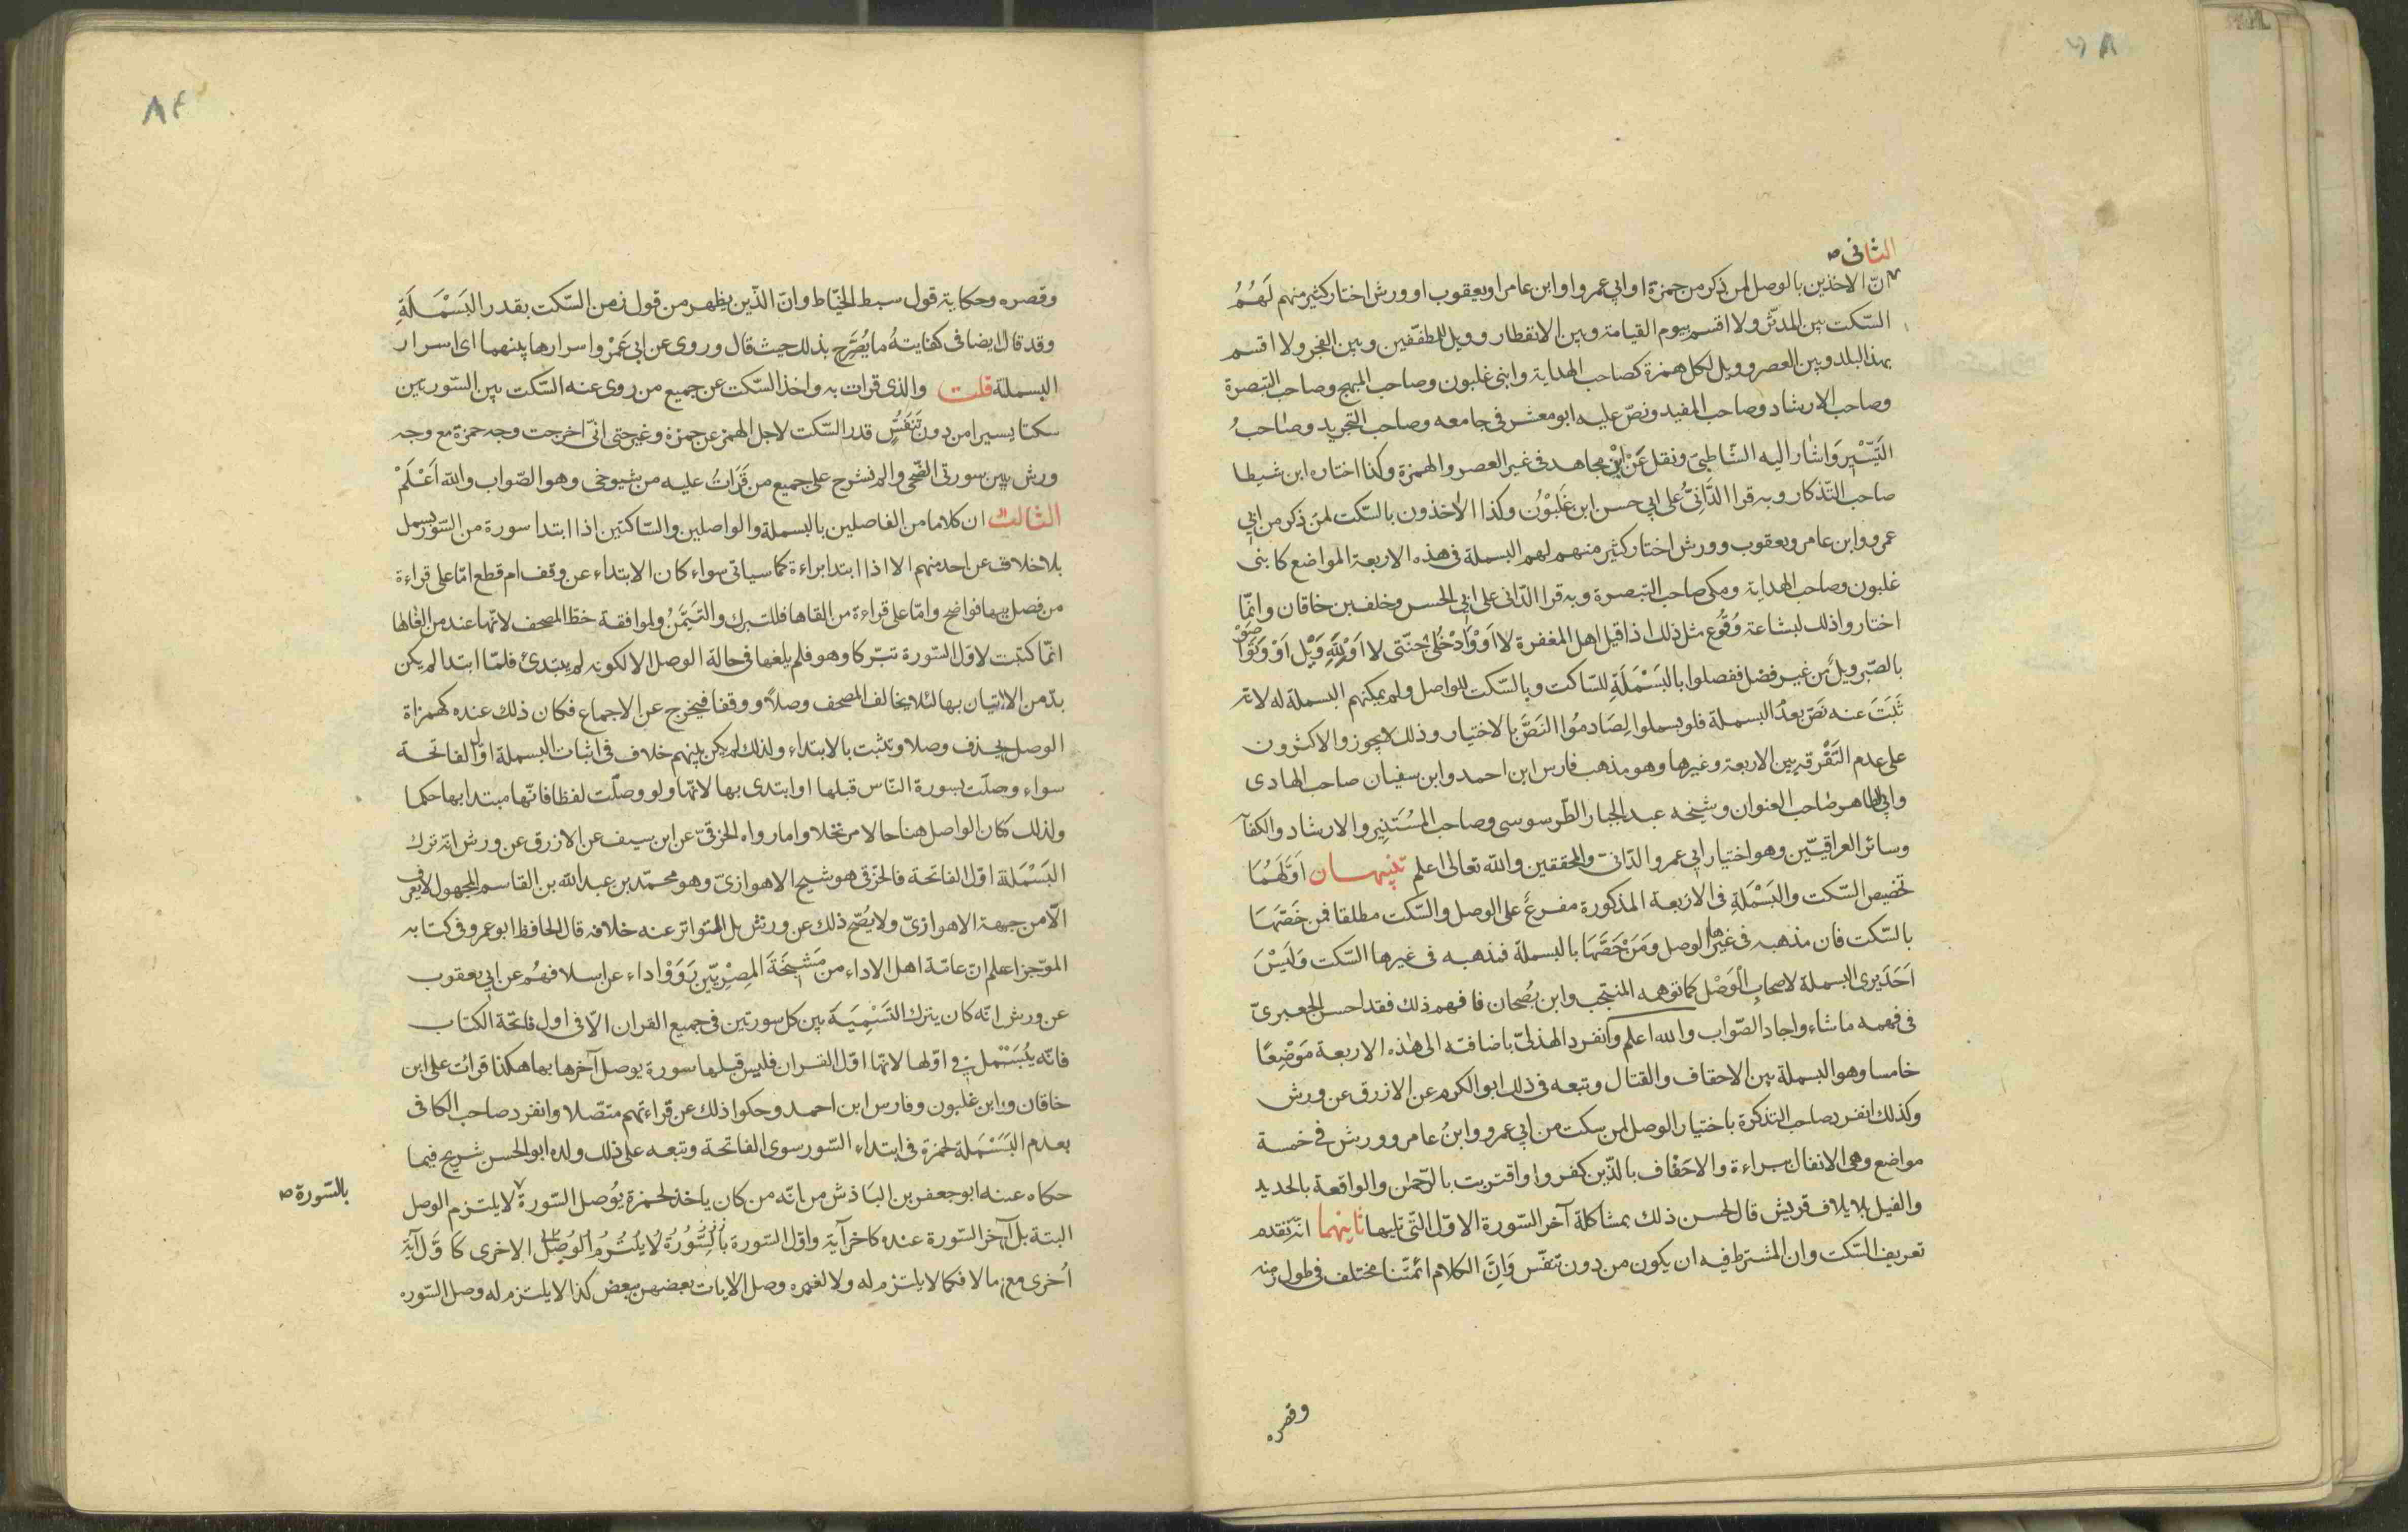 الثانى صـ
انّ الاخذين بالوصل لمن ذكر من حمزة او ابي عمرو او ابن عامر او يعقوب او ورش اختار كثير منهم لَهُمُ
السّكت بين المدثّر ولا اقسم بيوم القيامة وبين الانفطار وويل للمطفّفين وبين الفجر ولا اقسم
بهذا البلد وبين العصر وويل لكل همزة كصاحب الهداية وابنى غلبون وصاحب المبهج وصاحب التبصرة
وصاحب الارشاد وصاحب المفيد ونصّ عليه ابو معشر فى جامعه وصاحب التجريد وصاحبُ
التَيْسِيرِ وَاشار اليه الشّاطبىّ ونقل عَنْ ابْن مجاهد فى غير العصر والهمزة وكذا اختاره ابن شيطا
صاحب التّذكار وبه قرا الدَّانِىُّ على ابي حسن ابن غَلَبُوْن وكذا الاخذون بالسّكت لمن ذكر من ابي
عمرو وابن عامر ويعقوب وورش اختار كثير منهم لهم البسملة فى هذه الاربعة المواضع كابنى
غلبون وصاحب الهداية ومكى صاحب التبصرة وبه قرا الدّانى على ابي الحسن وخلف بن خاقان وانّما
اختاروا ذلك لبشاعة وُقُوع مثل ذلك اذا قيل اهل المغفرة لا اَوْ وَادْخُلى جنّتى لا اَوْ للّٰهِ وَيْل اَوْ وَتَوَا صَوْ
بالصّبر ويلٌ من غير فصْل ففصلوا بالبَسْمَلَةِ للسّاكت وبالسّكت للواصل ولم يمكنهم البسملة له لانّه
ثَبَتَ عنه نصّ بعدَُ البسملة فلو بسملوا لِصَادمُوا النَصَّ بالاختيار وذلك لا يجوز والاكثرون
على عدم التَفْرقه بين الاربعة وغيرها وهو مذهب فارس ابن احمد وابن سفيان صاحب الهادى
وابي الطاهر صاحب العنوان وشيخه عبد الجبار الطّرسوسى وصاحب المُسْتَنِير والارشاد والكفاَ
وسائر العراقيّين وهو اختيار ابي عمرو الدّانىّ والمحققين واللّه تعالى اعلم تنبيهان اَوَّلهُمَا
تخصيص السّكت والبَسْمَلةِ فى الاربعة المذكورة مفرعٌ على الوصل والسّكت مطلقا فمن خَصّهَا
بالسّكت فان مذهبه فى غيرها الوصل ومَنْ خَصَّهَا بالبسملة فمذهبه فى غيرها السّكت وَلَيْسَ
اَحَدٌ يرى البسملة لاصحابِ الْوَصْل كما توهمه المنتجب وابن بُصْحان فافهم ذلك فقد احسن الجعبرىّ
فى فهمه ما شاء واجاد الصّواب واللّه اعلم وانفرد الهذلىّ باضافته الى هٰذه الاربعة مَوْضِعًا
خامسا وهو البسملة بين الاحقاف والقتال وتبعه فى ذلك ابو الكرم عن الازرق عن ورش
وكذلك انفرد صاحب التذكرة باختيار الوصل لمن سكت من ابي عمرو وابنُ عامر وورش فى خمسة
مواضع وهى الانفال ببراءة والاحقاف بالذّين كفروا واقتربت بالرّحمٰن والواقعة بالحديد
والفيل بلايلاف قريش قال لحسن ذلك بمشاكلة آخر السّورة الاول التّى تليها ثانيهما انّه تقدم
تعريف السّكت وان المشترط فيه ان يكون من دون تنفّس وَاِنَّ الكلام ائمّتنا مختلف فى طول زمنه
وقصره
وقصره وحكاية قول سبط الخيّاط وانّ الذّين يظهر من قوله زمن السّكت بقدر البَسْمَلَةِ
وقد قال ايضا فى كفايتهُ ما يُصَرَّح بذلك حيث قال وروى عن ابي عَمْرو اسرارها بينهما اى اسرار
البسملة قلت والذى قرات به واخذ السّكت عن جميع من روى عنه السّكت بين السّورتين
سكتا يسيرا من دون تَنَفُسٍّ قدر السّكت لاجل الهمز عن حمزة وغير حتى انّى اخرجت وجه حمزة مع وجه
ورش بين سورتى الضّحى والم نشرح على جميع من قَرَاتُ عليه من شيوخى وهو الصّواب واللّه اَعْلَمْ
الثالث ان كلاما من الفاصلين بالبسملة والواصلين والسّاكتين اذا ابتدا سورة من السّور بسمل
بلا خلاف عن احد منهم الا اذا ابتدا براءة كما سياتى سواء كان الابتداء عن وقف ام قطع امّا على قراءة
من فصل بها فواضح وامّا على قراءة من القاها فللتبرك والتَيَمُّنُ ولموافقة خطّ المصحف لانّها عند من القاها
انّما كتبت لاول السّورة تبرّكا وهو فلم يلغها فى حالة الوصل الا لكونه لم يبتدئ فلمّا ابتدا لم يكن
بدّ من الاتيان بها لئلا يخالف المصحف وصلًا ووقفا فيخرج عن الاجماع فكان ذلك عنده كهمزاة
الوصل يحذف وصلا وتثبت بالابتداء ولذلك لم يكن بينهم خلاف فى اثبات البسملة اوّل الفاتحة
سواء وصلت بسورة النّاس قبلها او ابتدى بها لانّها ولو وصلّت لفظا فانّها مبتدا بها حكما
ولذلك كان الواصل هنا حالا مرتحلا واما رواه الخرقىّ عن ابن سيف عن الازرق عن ورش انّه ترك
البَسْمَلة اوّل الفاتحة فالخرّقى هو شيخ الاهوازىّ وهو محمّد بن عبد اللّه بن القاسم المجهول لا يعرف
الّا من جهة الاهوازىّ ولا يصُحّ ذلك عن ورش بل المتواتر عنه خلافه قال الحافظ ابو عمرو فى كتابه
الموّجز اعلم انّ عامّة اهل الاداء من مَشْيَخَةَ المِصْرِيّين رَوَوْا اداء عن اسلافهُم عن ابي يعقوب
عن ورش انّه كان يترك التَسْمِيَةَ بين كل سورتين فى جميع القران الّا فى اول فاتحة الكتاب
فانّه يُبَسْمل فى اوّلها لانّها اوّل القران فليس قبلها سورة يوصل آخرها بها هكذا قراتُ على ابن
خاقان وابن غلبون وفارس ابن احمد وحكوا ذلك عن قراءتهم متصّلا وانفرد صاحب الكافى
بعدم البَسْمَلة لحمزة فى ابتداء السّور سوى الفاتحة وتبعه على ذلك ولده ابو الحسن شريح فيما
حكاه عنه ابو جعفر بن الباذش من انّه من كان ياخذ لحمزة يوُصل السّورة لا يلتزم الوصل
بالسّورة صـ
البتة بل آخر السّورة عنده كاخر آية واوّل السّورة بالسُّورَةُ لا يلتزمُ الوُصل الاخرى كاوَّل آية
اُخرى مع مالا فكما لا يلتزم له ولا لغيره وصل الايات بعضهن ببعض كذا لا يلتزم له وصل السّوره